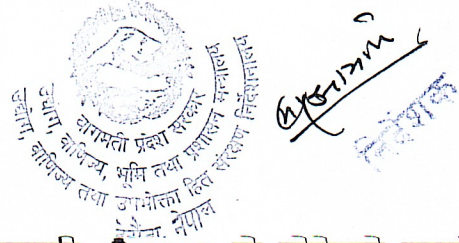 बागमती प्रदेश सरकार
उद्योग, वाणिज्य, भूमि तथा प्रशासन मन्त्रालय
उद्योग, वाणिज्य तथा उपभोक्ता हित संरक्षण निर्देशनालय
नेपाल
निर्देशक